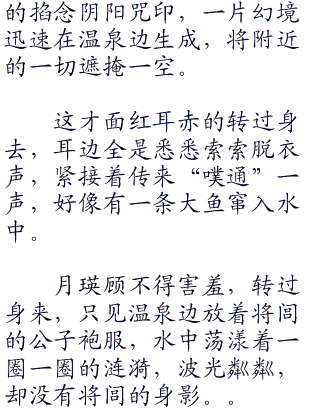 的掐念阴阳咒印，一片幻境
迅速在温泉边生成，将附近
的一切遮掩一空。
这才面红耳赤的转过身
去，耳边全是悉悉索索脱衣
声，紧接着传来“噗通”一
声，好像有一条大鱼窜入水
中。
月瑛顾不得害羞，转过
身来，只见温泉边放着将闾
的公子袍服，水中荡漾着一
圈一圈的涟漪，波光粼粼，
却没有将闾的身影。。